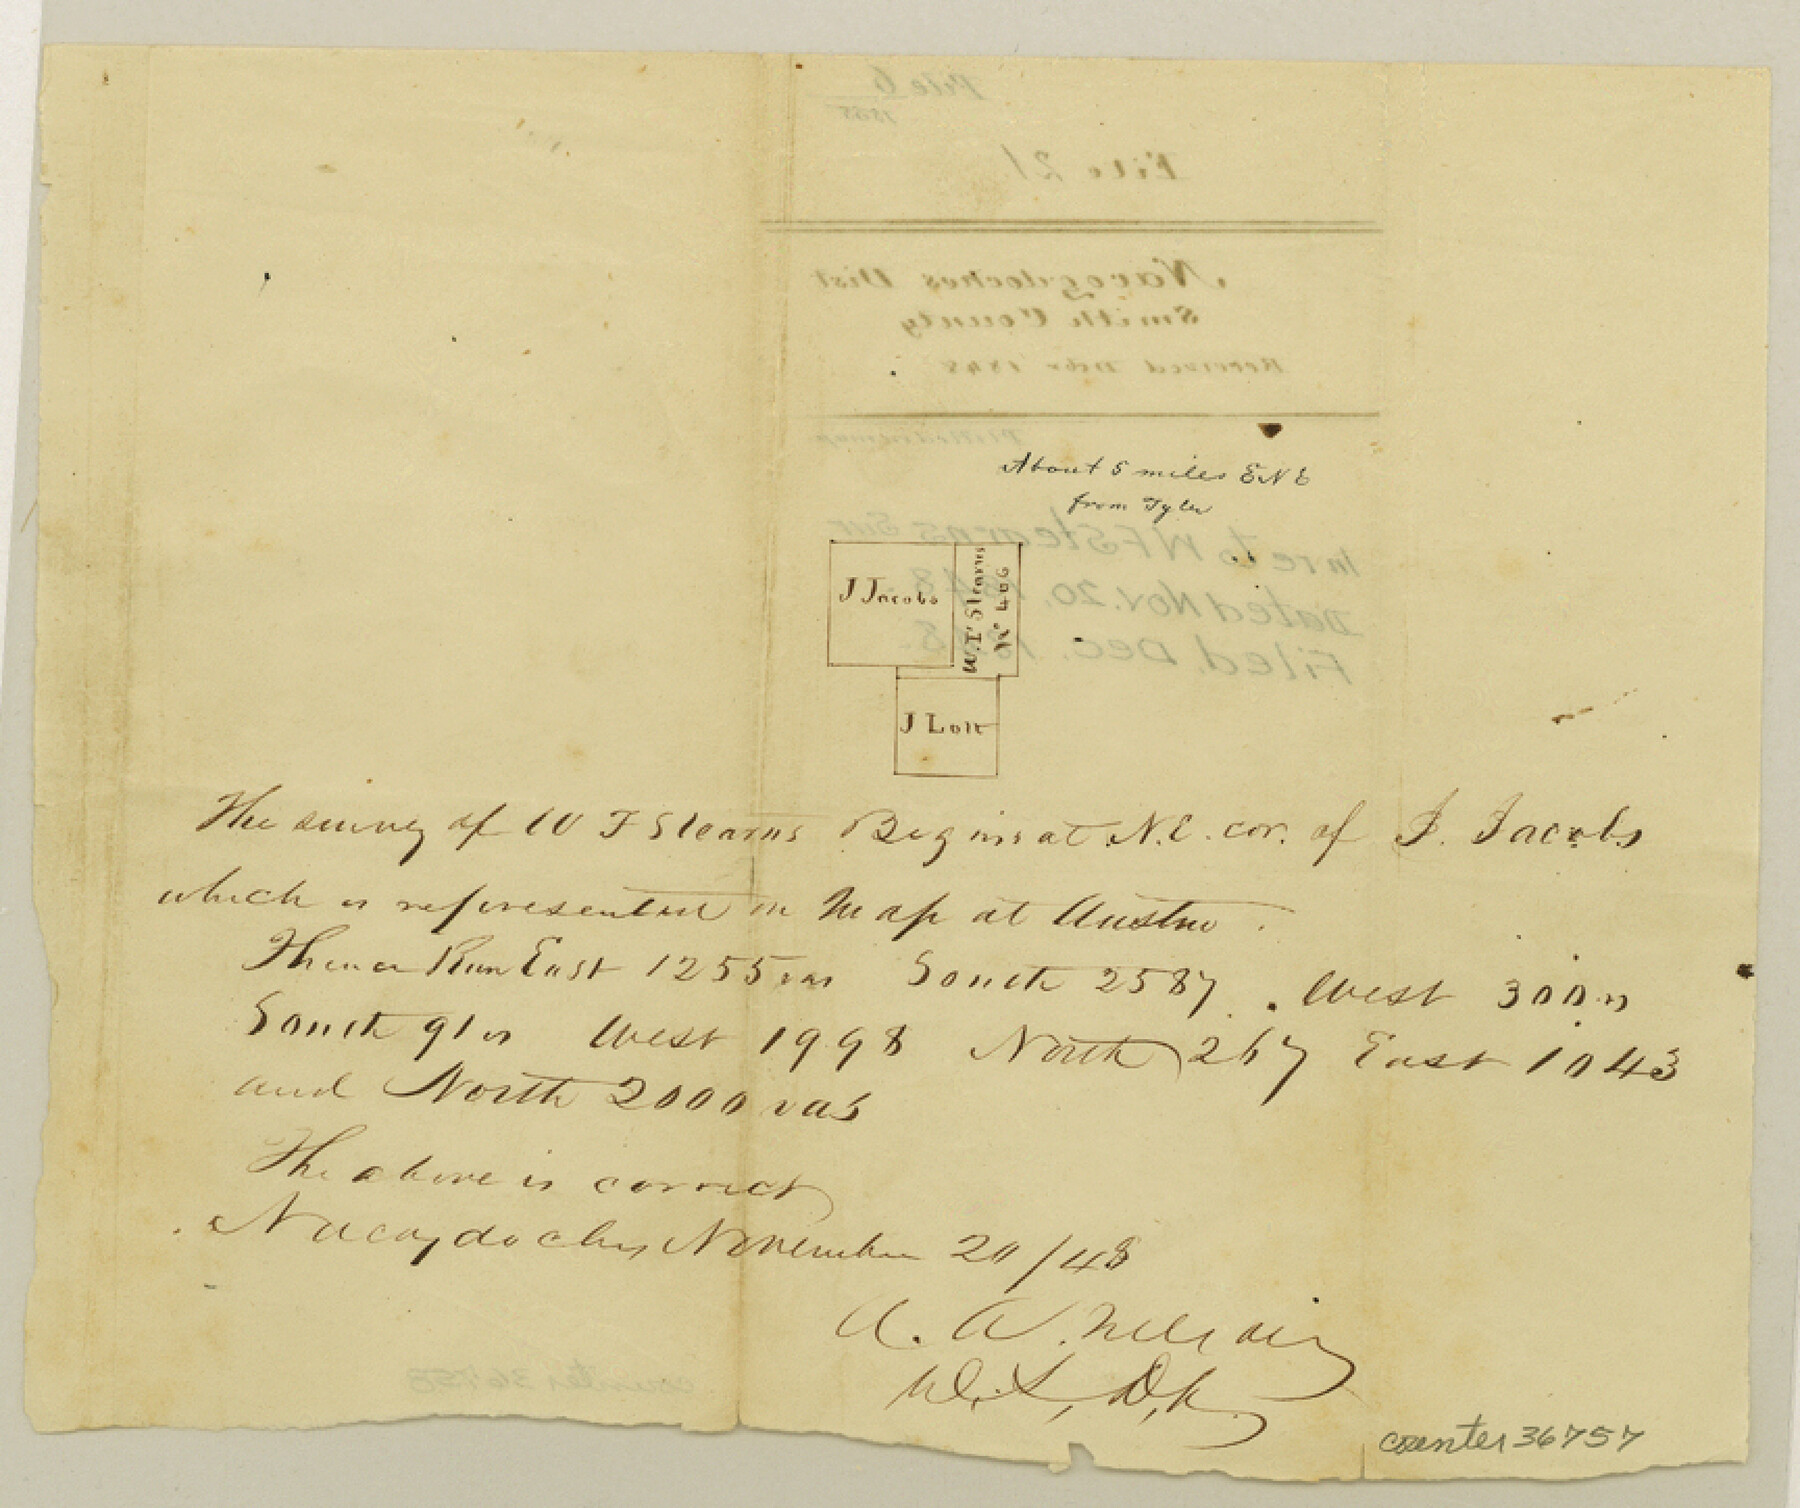 File 6
1848
File 21
Nacogdoches Dist
Smith County
Received Decbr 1848
About 5 miles ENE
from Tyler
In re to W F Stearns Sur
Dated Nov. 20, 1848.
Filed, Dec. 1848.
J Jacobs
W.F Stearns
No 406
J Lott
The survey of W F Stearns Begins at N.E. cor. of J. Jacobs
which is represented on Map at Austin.
Thence Run East 1255 vas South 2587. West 300 vs
South 91 vs West 1998 North 267 East 1043
and North 2000 vas
The above is correct
Nacogdoches November 20/48
A. A. Nelson
counter 36758
counter 36757